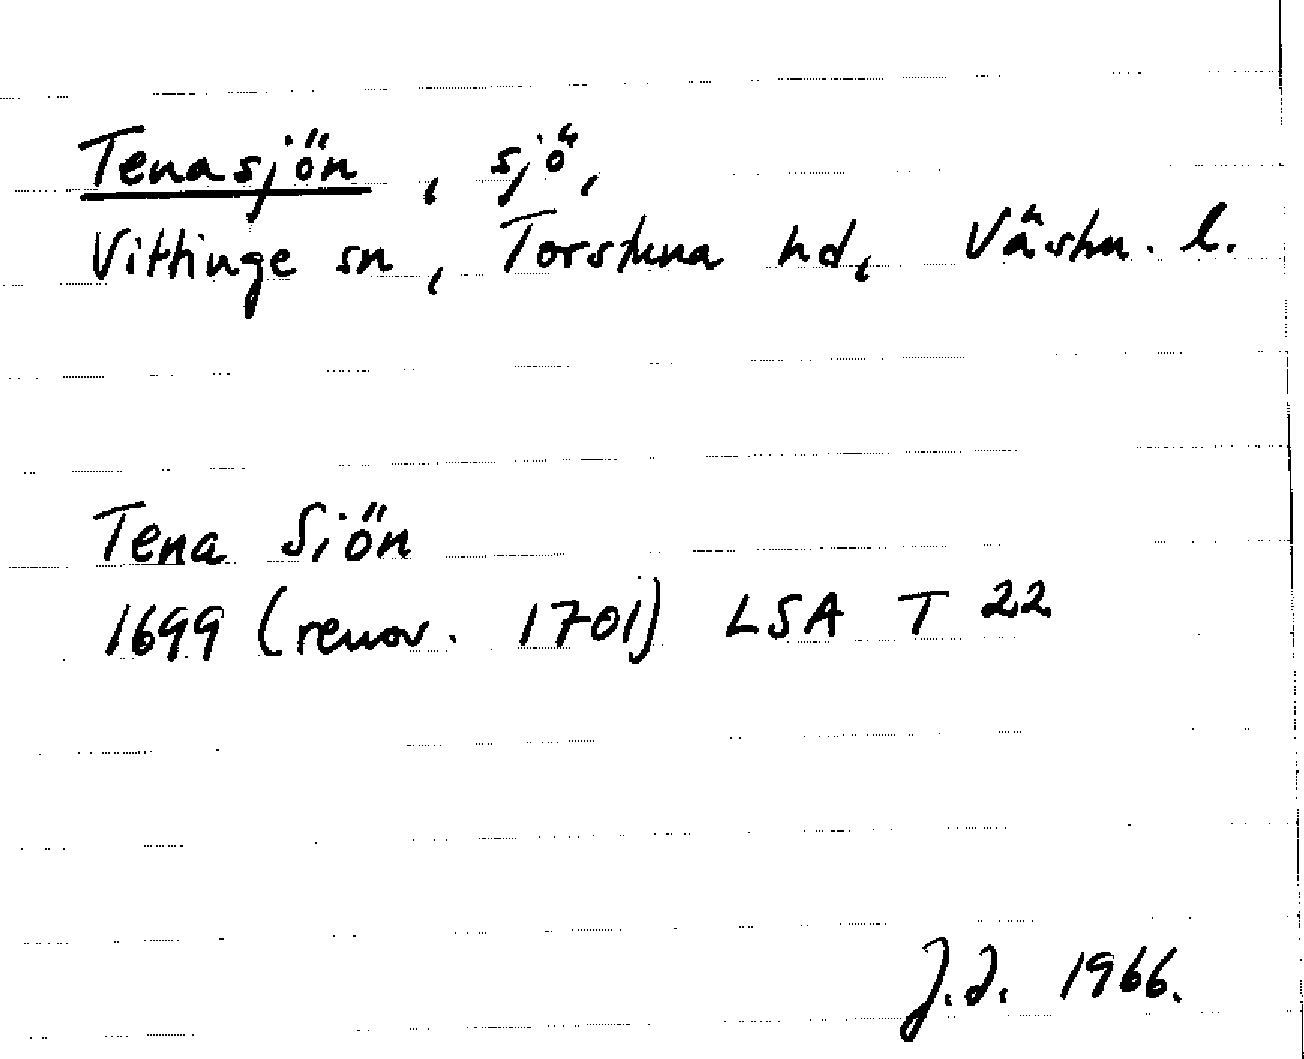 Tenasjön, sjö,
Vittinge sn, Torstuna hd, Västm. l.
Tena Siön
1699 (renov. 1701) LSA T 22
J.J. 1966.